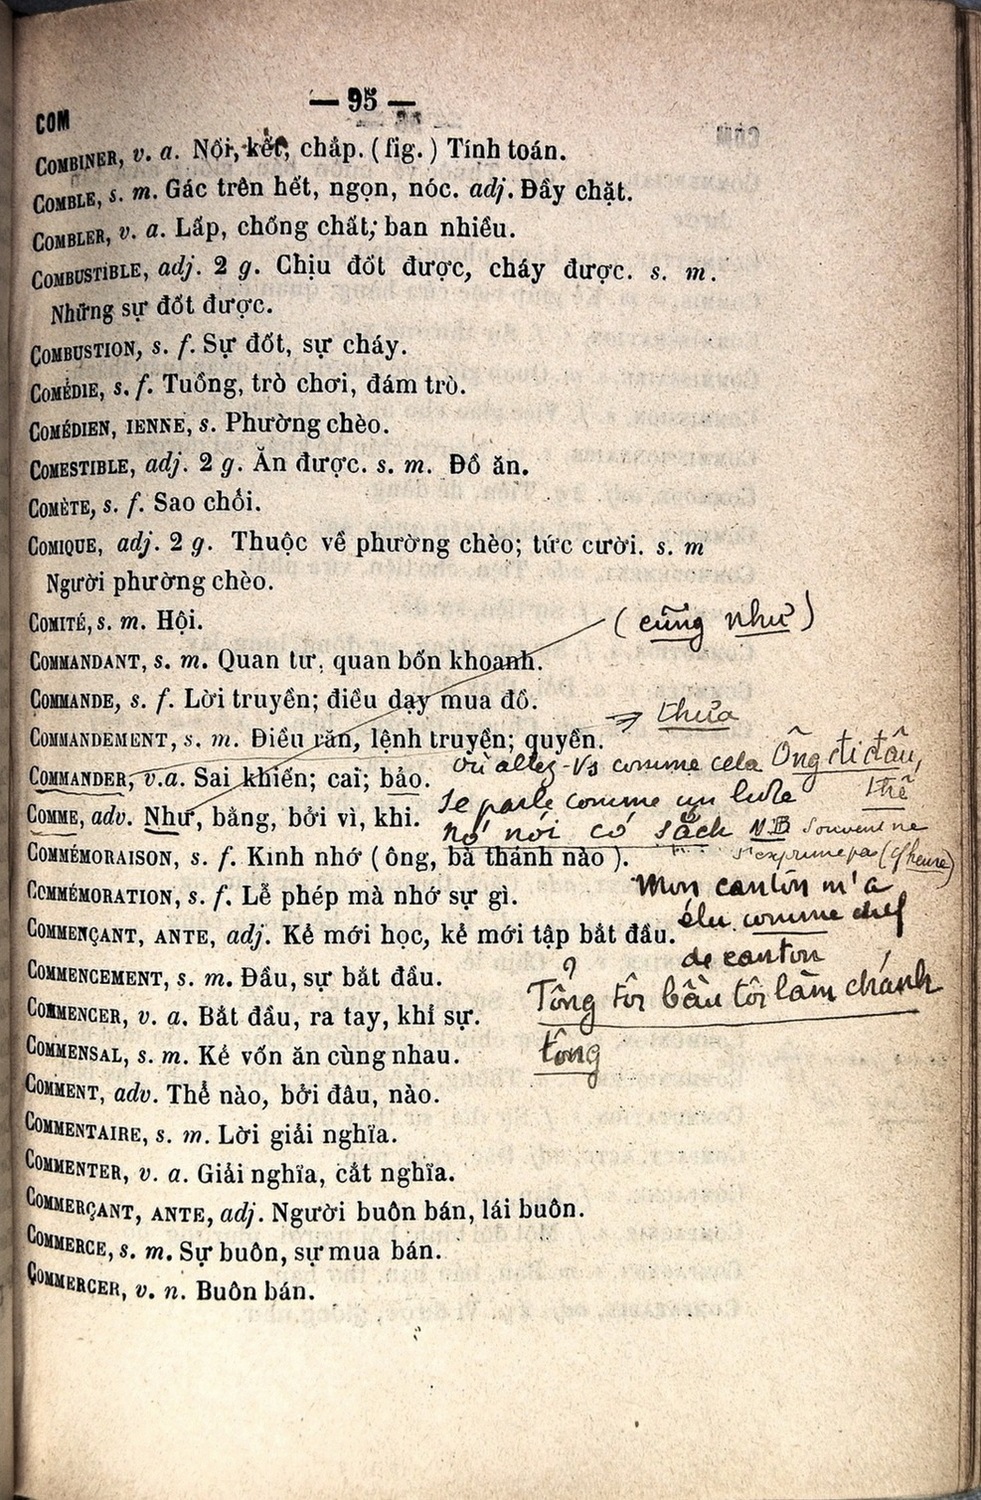 — 95 —
COM
COMBINER, v. a. Nối, kết, chấp. ( fig. ) Tính toán.
COMBLE, s. m. Gác trên hết, ngọn, nóc. adj. Đầy chặt.
COMBLER, v. a. Lấp, chồng chất; ban nhiều.
COMBUSTIBLE, adj. 2 g. Chịu đốt được, cháy được. s. m.
Những sự đốt được.
COMBUSTION, s. f. Sự đốt, sự cháy.
COMÉDIE, s. f. Tuồng, trò chơi, đám trò.
COMÉDIEN, IENNE, s. Phường chèo.
COMESTIBLE, adj. 2 g. Ăn được. s. m. Đồ ăn.
COMÈTE, s. f. Sao chổi.
COMIQUE, adj. 2 g. Thuộc về phường chèo; tức cười. s. m
Người phường chèo.
COMITÉ, s. m. Hội.
( cũng như )
COMMANDANT, s. m. Quan tư, quan bốn khoanh.
COMMANDE, s. f. Lời truyền; điều dạy mua đồ.
thưa
COMMANDEMENT, s. m. Điều răn, lệnh truyền; quyền.
où allez-vs comme cela Ông đi đâu,
thế
COMMANDER, v.a. Sai khiến; cai; bảo.
Je parle comme un livre
COMME, adv. Như, bằng, bởi vì, khi.
nó nói có sách NB Souvent ne
s'exprime pas (q/ heure)
COMMÉMORAISON, s. f. Kính nhớ ( ông, bà thánh nào ).
Mon canton m'a
COMMÉMORATION, s. f. Lễ phép mà nhớ sự gì.
élu comme chef
COMMENÇANT, ANTE, adj. Kẻ mới học, kẻ mới tập bắt đầu.
de canton
COMMENCEMENT, s. m. Đầu, sự bắt đầu.
Tổng tôi bầu tôi làm chánh
COMMENCER, v. a. Bắt đầu, ra tay, khỉ sự.
tổng
COMMENSAL, s. m. Kẻ vốn ăn cùng nhau.
COMMENT, adv. Thể nào, bởi đâu, nào.
COMMENTAIRE, s. m. Lời giải nghĩa.
COMMENTER, v. a. Giải nghĩa, cắt nghĩa.
COMMERÇANT, ANTE, adj. Người buôn bán, lái buôn.
COMMERCE, s. m. Sự buôn, sự mua bán.
COMMERCER, v. n. Buôn bán.